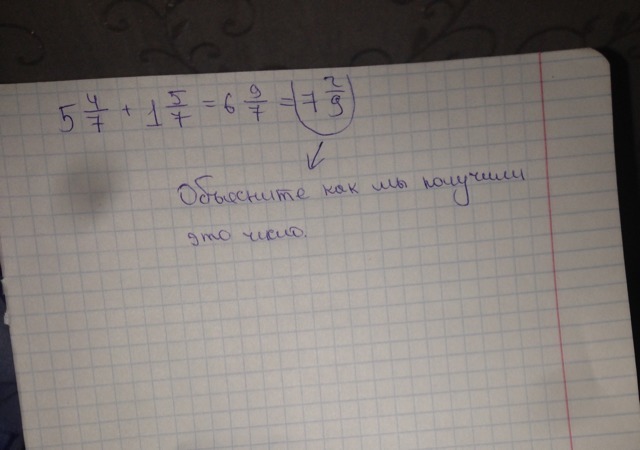 5 4/7 + 1 5/7 = 6 9/7 = 7 2/9
Объесните как мы получили
это число.